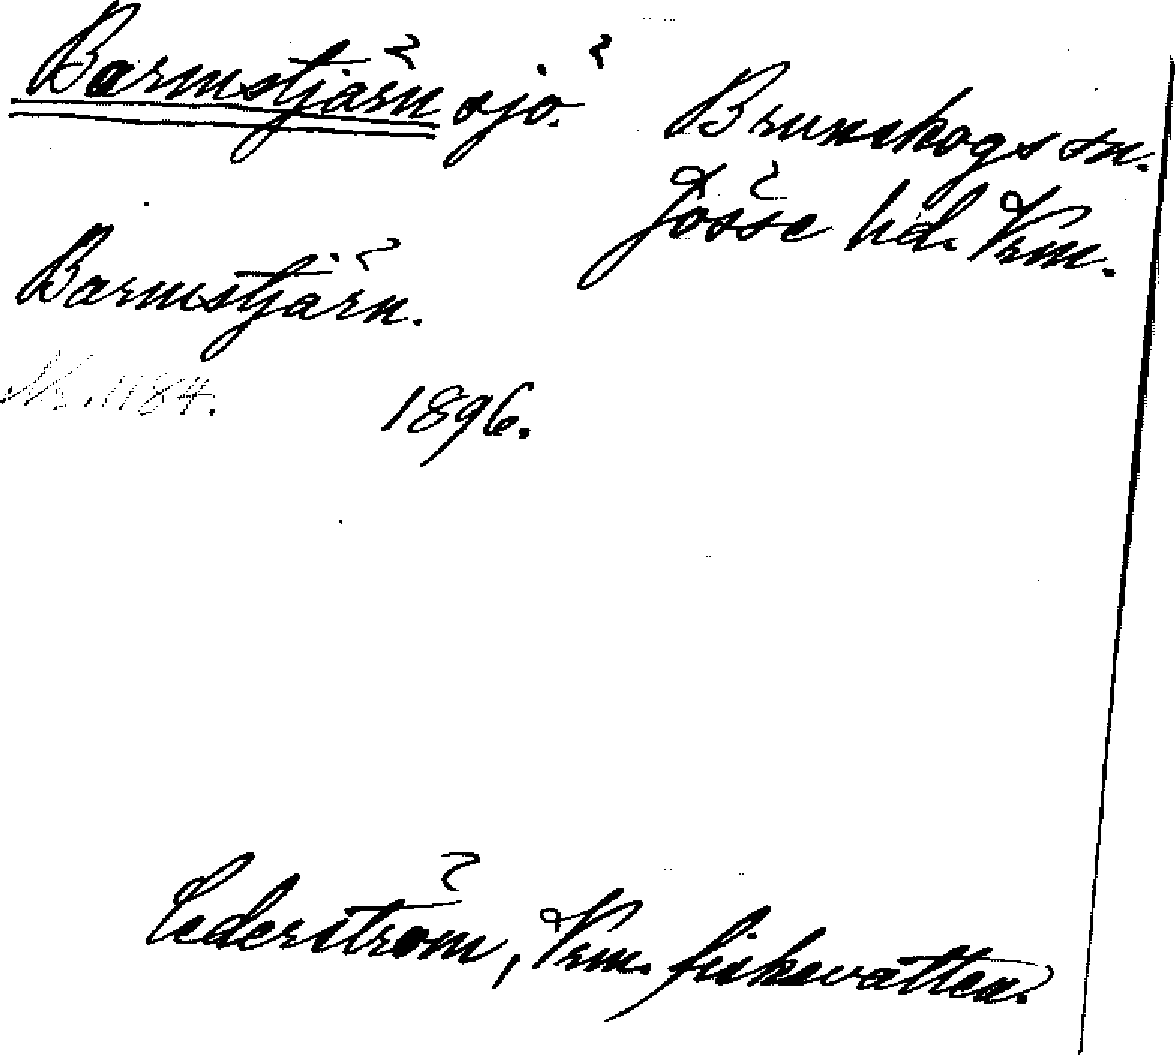 Barmstjärn sjö.
Brunskogs sn.
Jösse hd. Vrm.
Barmstjärn.
Nr. 1184.
1896.
Cederström, Vrm. fiskevatten.